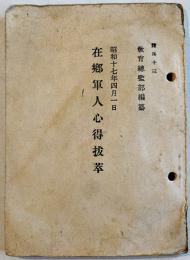 教育總監部編纂
昭和十七年四月一日
在鄕軍人心得拔萃